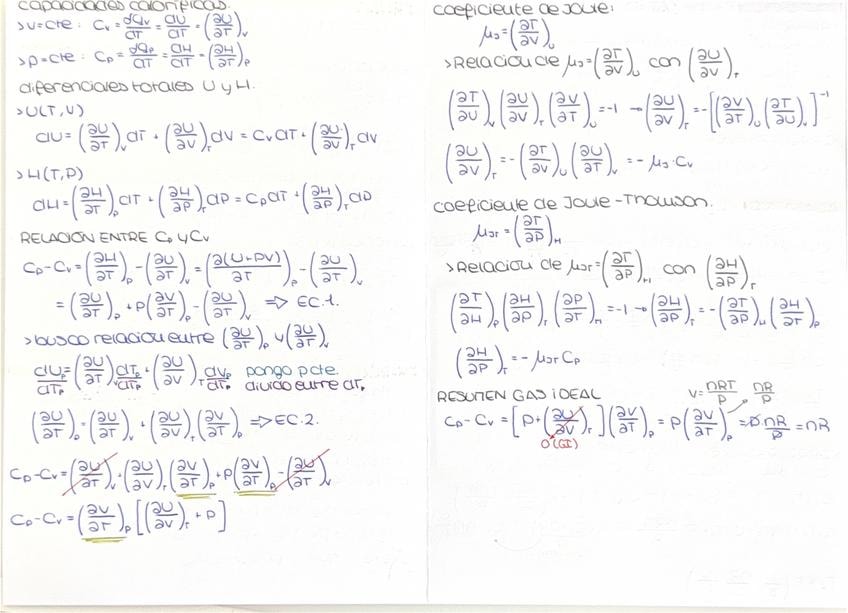 capacidades caloríficas.
>v=cte: Cv = dqv/dT = dU/dT = (∂U/∂T)v
>p=cte: Cp = dqp/dT = dH/dT = (∂H/∂T)p
diferenciales totales U y H.
>U(T,V)
dU = (∂U/∂T)v dT + (∂U/∂V)T dV = Cv dT + (∂U/∂V)T dV
>H(T,P)
dH = (∂H/∂T)p dT + (∂H/∂P)T dP = Cp dT + (∂H/∂P)T dP
RELACIÓN ENTRE Cp y Cv
Cp-Cv = (∂H/∂T)p - (∂U/∂T)v = (∂(U+PV)/∂T)p - (∂U/∂T)v
= (∂U/∂T)p + P(∂V/∂T)p - (∂U/∂T)v ⇒ EC.1.
>busco relacion entre (∂U/∂T)p y (∂U/∂T)v
dUp/dTp = (∂U/∂T)v dTp/dTp + (∂U/∂V)T dVp/dTp pongo p cte. divido entre dTp
(∂U/∂T)p = (∂U/∂T)v + (∂U/∂V)T (∂V/∂T)p ⇒ EC.2.
Cp-Cv = (∂U/∂T)v + (∂U/∂V)T (∂V/∂T)p + P(∂V/∂T)p - (∂U/∂T)v
Cp-Cv = (∂V/∂T)p [(∂U/∂V)T + P]
coeficiente de Joule:
μJ = (∂T/∂V)U
>Relacion de μJ = (∂T/∂V)U con (∂U/∂V)T
(∂T/∂U)V (∂U/∂V)T (∂V/∂T)U = -1 → (∂U/∂V)T = -[(∂V/∂T)U (∂T/∂U)V]⁻¹
(∂U/∂V)T = -(∂T/∂V)U (∂U/∂T)V = -μJ·Cv
coeficiente de Joule-Thomson.
μJT = (∂T/∂P)H
>Relacion de μJT = (∂T/∂P)H con (∂H/∂P)T
(∂T/∂H)P (∂H/∂P)T (∂P/∂T)H = -1 → (∂H/∂P)T = -(∂T/∂P)H (∂H/∂T)P
(∂H/∂P)T = -μJT Cp
RESUMEN GAS IDEAL
V = nRT/P nR/P
Cp-Cv = [P + (∂U/∂V)T] (∂V/∂T)p = P(∂V/∂T)p = P nR/P = nR
0 (GI)